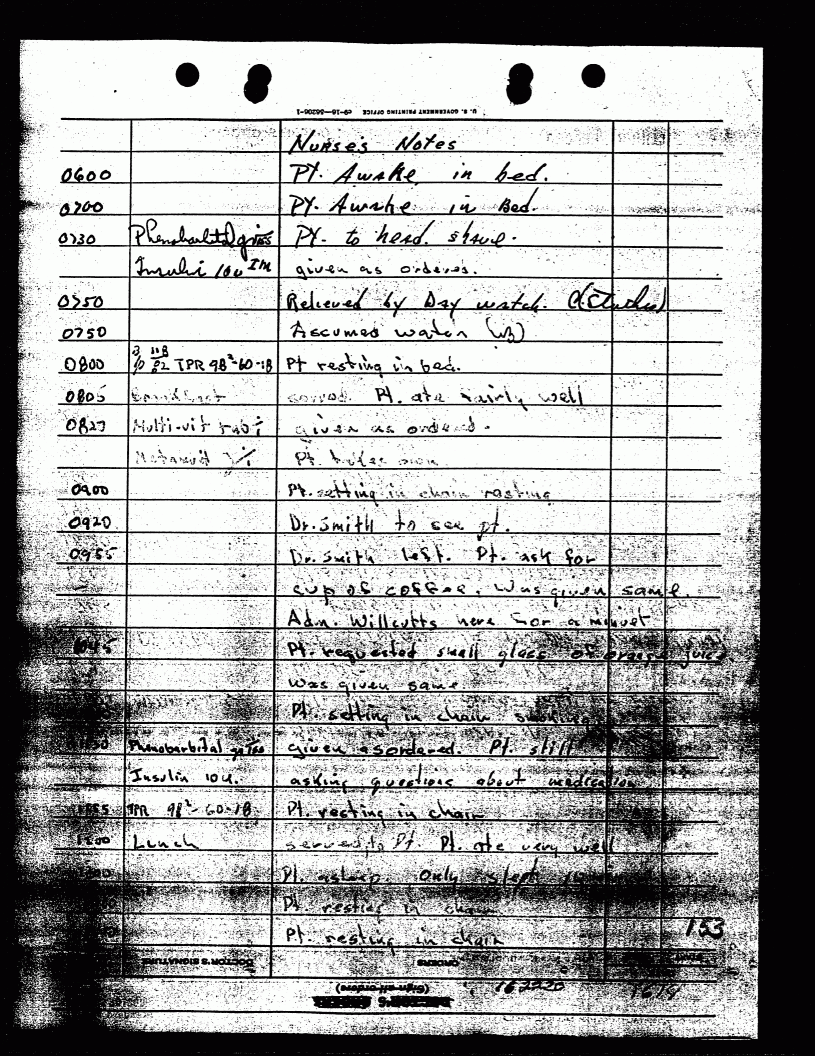 U. S. GOVERNMENT PRINTING OFFICE c9-16-56206-1
Nurse's Notes
0600 Pt. Awake in bed.
0700 PY. Awake in Bed.
0730 Phenobarbital PY. to head. shave.
Insulin 10u IM given as ordered.
0750 Relieved by Day watch.
0750 Assumed watch
0800 118 82 TPR 98²-60-18 Pt resting in bed.
0805 Breakfast served. Pt. ate fairly well
0827 Multi-vit tab i given as ordered.
Pt. takes own
0900 Pt. setting in chair resting
0920 Dr. Smith to see pt.
0955 Dr. Smith left. Pt. ask for
cup of coffee. Was given same.
Adm. Willcutts here for a minuet
1045 Pt. requested small glass of orange juice.
was given same
Pt. setting in chair smoking
Phenobarbital given as ordered. Pt. still
Insulin 10u. asking questions about medication
TPR 98²-60-18 Pt. resting in chair
1200 Lunch served to Pt. Pt. ate very well
Pt. asleep. Only slept
Pt. resting in chair
Pt. resting in chair
153
DOCTOR'S SIGNATURE ORDERS
(Sign all orders)